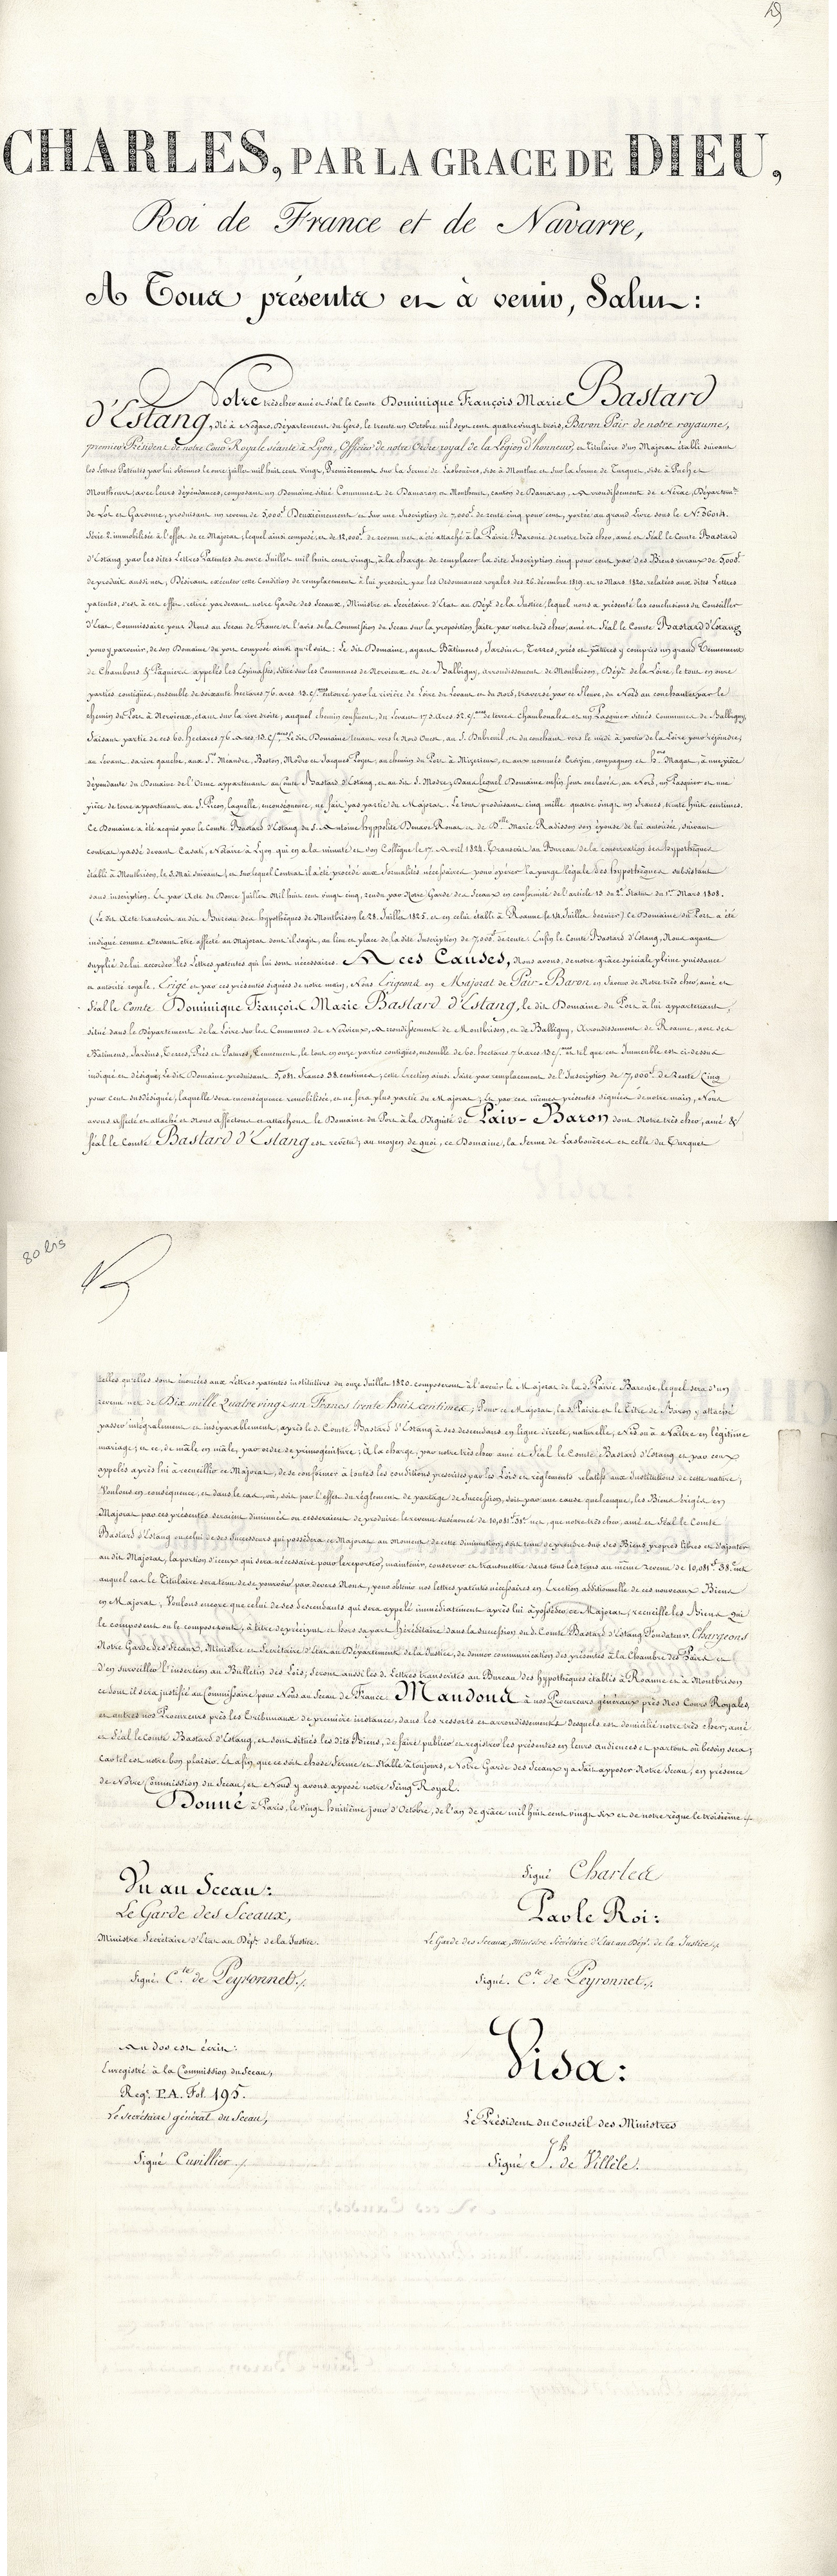 CHARLES, PAR LA GRACE DE DIEU,
Roi de France et de Navarre,
A Tous présents et à venir, Salut:
Notre très cher amé et féal le Comte Dominique François Marie Bastard
d'Estang, Né à Nogaro, Département du Gers, le trente un Octobre mil sept cent quatre vingt trois, Baron Pair de notre royaume,
premier Président de notre Cour Royale séante à Lyon, Officier de notre Ordre royal de la Légion d'honneur, est titulaire d'un Majorat établi suivant
les Lettres Patentes par lui obtenues le onze juillet mil huit cent vingt, Premièrement sur la Ferme de Lasbouères, sise à Monthur et sur la Ferme de Turquet, sise à Puch et
Montheur, avec leurs dépendances, composant un Domaine situé Communes de Damazan et Montheur, canton de Damazan, Arrondissement de Nérac, Départemt.
de Lot et Garonne, produisant un revenu de 5,000f Deuxièmement et sur une Inscription de 7,000f de rente cinq pour cent, portée au grand Livre sous le No. 36014.
Série 2. immobilisée à l'effet de ce Majorat, lequel ainsi composé, et de 12,000f de revenu net, a été attaché à la Pairie Baronie de notre très cher, amé et Féal le Comte Bastard
d'Estang par les dites Lettres Patentes du onze Juillet mil huit cent vingt, à la charge de remplacer la dite Inscription cinq pour cent par des Biens ruraux de 5,000f
de produit aussi net; Désirant exécuter cette Condition de remplacement à lui prescrite par les Ordonnances royales des 26 décembre 1819, et 10 Mars 1820, relatées aux dites Lettres
patentes, s'est à cet effet, retiré par devant notre Garde des Sceaux, Ministre et Secrétaire d'Etat au Dépt. de la Justice, lequel nous a présenté les conclusions du Conseiller
d'Etat, Commissaire pour Nous au Sceau de France et l'avis de la Commission du Sceau sur la proposition faite par notre très cher, amé et Féal le Comte Bastard d'Estang
pour y parvenir, de son Domaine du port composé ainsi qu'il suit: Le dit Domaine, ayant Bâtiments, Jardins, Terres, prés et pâtures y compris un grand Tennement
de Chambons & Paquiers appelés les Epinasses, situé sur les Communes de Nervieux et de Balbigny, arrondissement de Montbrison, Dépt. de la Loire, le tout en onze
parties contigües, ensemble de soixante hectares 76. ares. 13 c/mes entouré par la rivière de Loire du Levant et du Nord, traversé par ce Fleuve, du Nord au couchant par le
chemin du Port à Nervieux, et aux sur la rive droite, auquel chemin confinent, du Levant 173. Ares. 52. c/mes de terres Chambonales et un Pasquier situés Commune de Balbigny,
Faisant partie de ces 60. Hectares 76 Ares 13. c/mes Le dit Domaine tenant vers le Nord Ouest, au S. Dubreuil, et du couchant vers le midi à partir de la Loire pour rejoindre,
au Levant, sa rive gauche, aux Srs Meandre, Boston, Modre et Jacques Poyet, au chemin du Port à Mizerieux, et aux nommés Crozien, compagnon et hers Magat, à une pièce
dépendante du Domaine de l'Orme appartenant au Comte Bastard d'Estang, et au dit S. Modre; Dans lequel Domaine enfin sont enclavés, au Nord, un Pasquier et une
pièce de terre appartenant au S. Peson, laquelle, en conséquence, ne fait pas partie du Majorat. Le tout produisant cinq mille quatre vingt un francs, trente huit centimes.
Ce Domaine a été acquis par le Comte Bastard d'Estang du S. Antoine hyppolite Benave Rouat et de Dlle Marie Radisson son épouse de lui autorisée, suivant
contrat passé devant Casati, Notaire à Lyon, qui en a la minute et son Collègue le 17. Avril 1824. Transcrit au Bureau de la conservation des hypothèques
établi à Montbrison, le 3. Mai suivant; et sur lequel Contrat il a été procédé aux formalités nécessaires pour opérer la purge légale des hypothèques subsistant
sans inscription. Et par Acte du Douze Juillet Mil huit cent vingt cinq, rendu par Notre Garde des Sceaux en conformité de l'article 13 du 2e. Statut du 1er. Mars 1808.
(Le dit Acte transcrit au dit Bureau des hypothèques de Montbrison le 28. Juillet 1825. et en celui établi à Roanne le 14 Juillet dernier) ce Domaine du Port a été
indiqué comme devant être affecté au Majorat dont il s'agit, au lieu et place de la dite Inscription de 7,000f de rente. Enfin le Comte Bastard d'Estang, Nous ayant
supplié de lui accorder les Lettres patentes qui lui sont nécessaires. A ces Causes, Nous avons, de notre grâce spéciale, pleine puissance
et autorité royale. Erigé et par ces présentes signées de notre main, Nous Erigeons en Majorat de Pair-Baron en faveur de Notre très cher, amé et
Féal le Comte Dominique François Marie Bastard d'Estang, le dit Domaine du Port à lui appartenant,
situé dans le Département de la Loire sur les Communes de Nervieux, Arrondissement de Montbrison, et de Balbigny, Arrondissement de Roanne, avec ses
Bâtimens, Jardins, Terres, Prés et Patures, Tennement, le tout en onze parties contigües, ensemble de 60. hectares 76 ares 13 c/mes et tel que cet Immeuble est ci-dessus
indiqué et désigné; Le dit Domaine produisant 5,081. Francs 38 centimes; cette Erection ainsi faite par remplacement de l'Inscription de 7,000f de Rente Cinq
pour cent susdésignée, laquelle sera en conséquence remobilisée, et ne fera plus partie du Majorat; Et par ces mêmes présentes signées de notre main, Nous
avons affecté et attaché et Nous affectons et attachons le Domaine du Port à la Dignité de Pair-Baron dont Notre très cher, amé &
Féal le Comte Bastard d'Estang est revêtu; au moyen de quoi, ce Domaine, la Ferme de Lasbouères et celle du Turquet
80 bis
telles qu'elles sont énoncées aux Lettres patentes institutives du onze Juillet 1820. composeront à l'avenir le Majorat de la d. Pairie Baronie, lequel sera d'un
revenu net de Dix mille Quatre vingt un Francs trente huit centimes; Pour ce Majorat, la d. Pairie et le Titre de Baron y attaché
passer intégralement et inséparablement, après le d. Comte Bastard d'Estang à ses descendans en ligne directe, naturelle, Nés ou à Naître en légitime
mariage; et ce, de mâle en mâle, par ordre de primogéniture; A la charge, par notre très cher amé et Féal le Comte Bastard d'Estang et par ceux
appelés après lui à recueillir ce Majorat, de se conformer à toutes les conditions prescrites par les Lois et règlements relatifs aux Institutions de cette nature;
Voulons en conséquence, et dans le cas où, soit par l'effet du règlement de partage de Succession, soit par une cause quelconque, les Biens érigés en
Majorat par ces présentes seraient diminués ou cesseraient de produire le revenu susénoncé de 10,081f 38c net, que notre très cher, amé et Féal le Comte
Bastard d'Estang ou celui de ses Successeurs qui possédera ce Majorat au moment de cette diminution, soit tenu de prendre sur ses Biens propres libres et d'ajouter
au dit Majorat, la portion d'iceux qui sera nécessaire pour le reporter, maintenir, conserver et transmettre dans tous les tems au même revenu de 10,081f 38c net
auquel cas le Titulaire sera tenu de se pourvoir par devers Nous, pour obtenir nos lettres patentes nécessaires en Erection additionnelle de ces nouveaux Biens
en Majorat; Voulons encore que celui de ses descendants qui sera appelé immédiatement après lui à posséder ce Majorat, recueille les Biens qui
le composent ou le composeront, à titre de préciput et hors sa part héréditaire dans la succession du d. Comte Bastard d'Estang Fondateur. Chargeons
Notre Garde des Sceaux, Ministre et Secrétaire d'Etat au Département de la Justice, de donner communication des présentes à la Chambre des Pairs et
d'en surveiller l'insertion au Bulletin des Lois; Seront aussi les d. Lettres transcrites au Bureau des hypothèques établis à Roanne et à Montbrison
ce dont il sera justifié au Commissaire pour Nous au Sceau de France. Mandons à nos Procureurs généraux près Nos Cours Royales,
et autres nos Procureurs près les Tribunaux de première instance, dans les ressorts et arrondissements desquels est domicilié notre très cher, amé
et Féal le Comte Bastard d'Estang, et sont situés les dits Biens, de faire publier et registrer les présentes en leurs audiences et partout où besoin sera;
Car tel est notre bon plaisir. Et afin que ce soit chose Ferme et Stable à toujours, Notre Garde des Sceaux y a fait apposer Notre Sceau, en présence
de Notre Commission du Sceau, et Nous y avons apposé notre Seing Royal.
Donné à Paris, le vingt huitième jour d'Octobre, de l'an de grâce mil huit cent vingt six et de notre règne le troisième./.
Signé Charles
Vu au Sceau:
Par le Roi:
Le Garde des Sceaux,
Ministre Secrétaire d'Etat au Dépt. de la Justice.
Le Garde des Sceaux, Ministre Secrétaire d'Etat au Dépt. de la Justice./.
Signé. Cte de Peyronnet./.
Signé. Cte de Peyronnet./.
Au dos est écrit:
Enregistré à la Commission du Sceau,
Visa:
Regt. P.A. Fol. 195.
Le Secrétaire général du Sceau,
Le Président du Conseil des Ministres
Signé Cuvillier./.
Signé Jh. de Villèle.